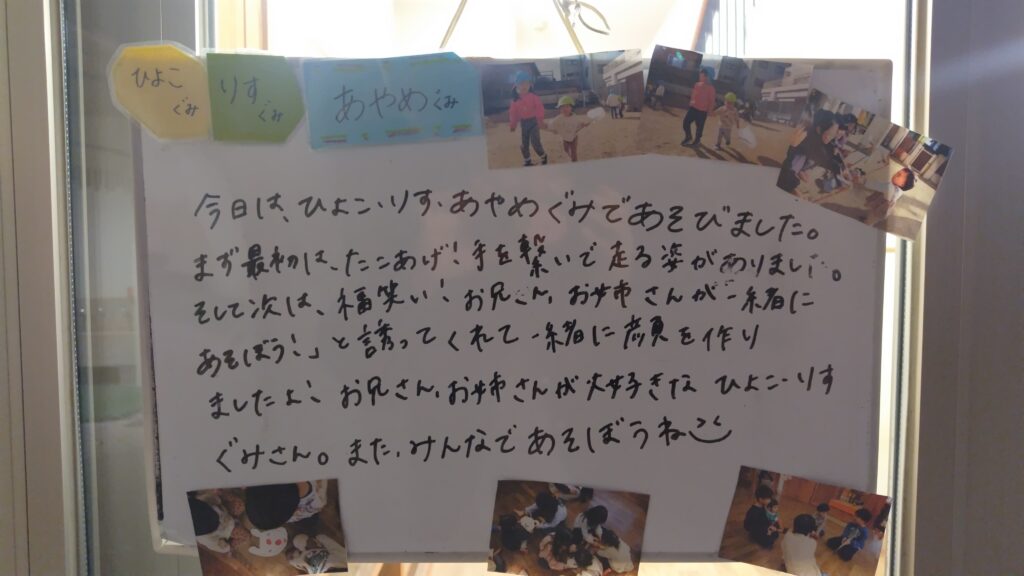 ひよこぐみ
りすぐみ
あやめぐみ
今日は、ひよこ・りす・あやめぐみであそびました。
まず最初は、たこあげ！手を繋いで走る姿がありました。
そして次は、福笑い！お兄さん、お姉さんが一緒に
あそぼう！」と誘ってくれて一緒に顔を作り
ましたよ！お兄さん、お姉さんが大好きな ひよこ・りす
ぐみさん。また、みんなであそぼうね